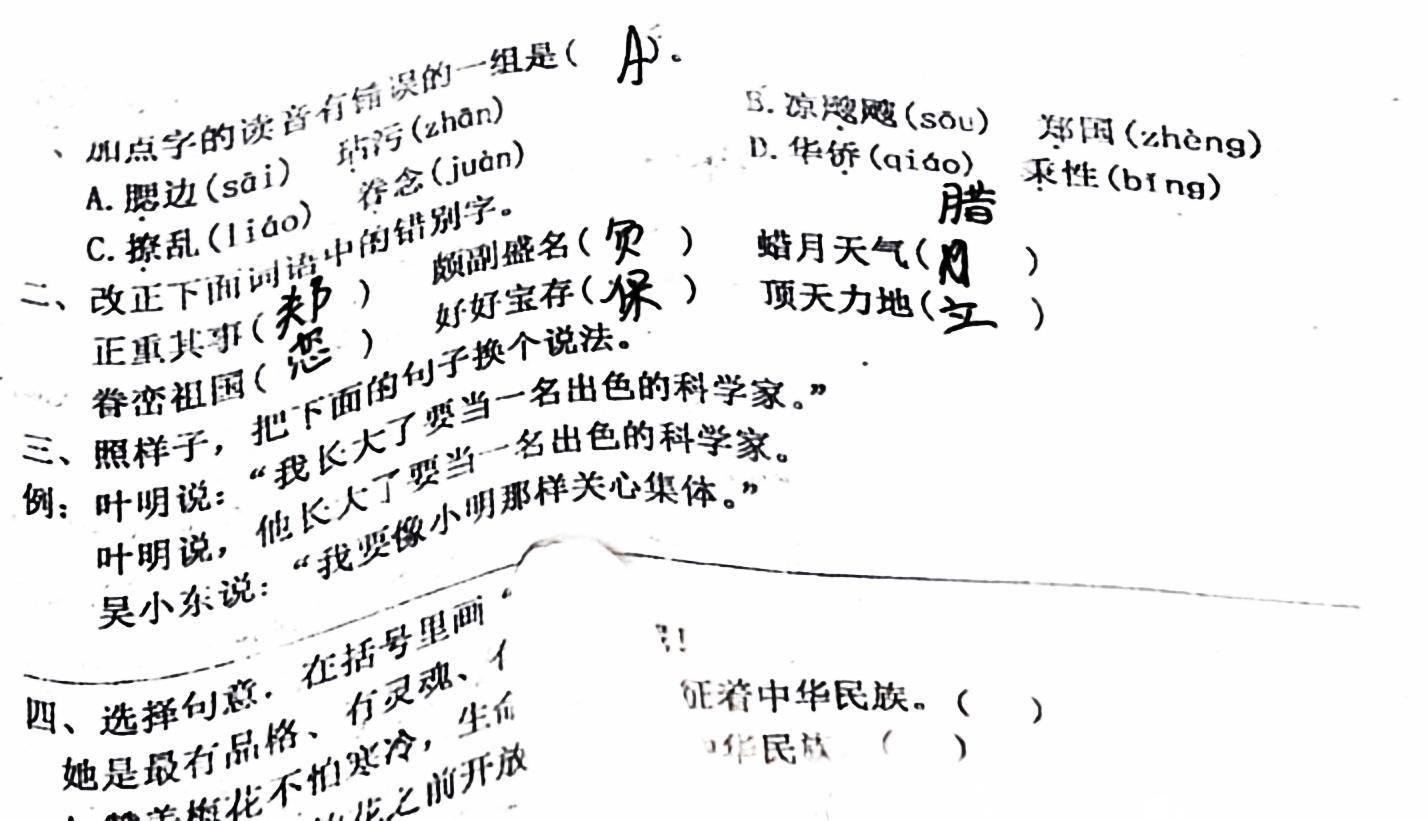 、加点字的读音有错误的一组是( A )。
A.腮边(sāi) 玷污(zhān) B.凉飕飕(sōu) 郑国(zhèng)
C.撩乱(liáo) 眷念(juàn) D.华侨(qiáo) 秉性(bǐng)
二、改正下面词语中的错别字。
正重其事( 郑 ) 颇副盛名( 负 ) 蜡月天气( 腊月 )
眷峦祖国( 恋 ) 好好宝存( 保 ) 顶天力地( 立 )
三、照样子，把下面的句子换个说法。
例：叶明说：“我长大了要当一名出色的科学家。”
叶明说，他长大了要当一名出色的科学家。
吴小东说：“我要像小明那样关心集体。”
四、选择句意，在括号里画“
她是最有品格、有灵魂、
梅花不怕寒冷，生命 征着中华民族。( )
花之前开放 中华民族 ( )